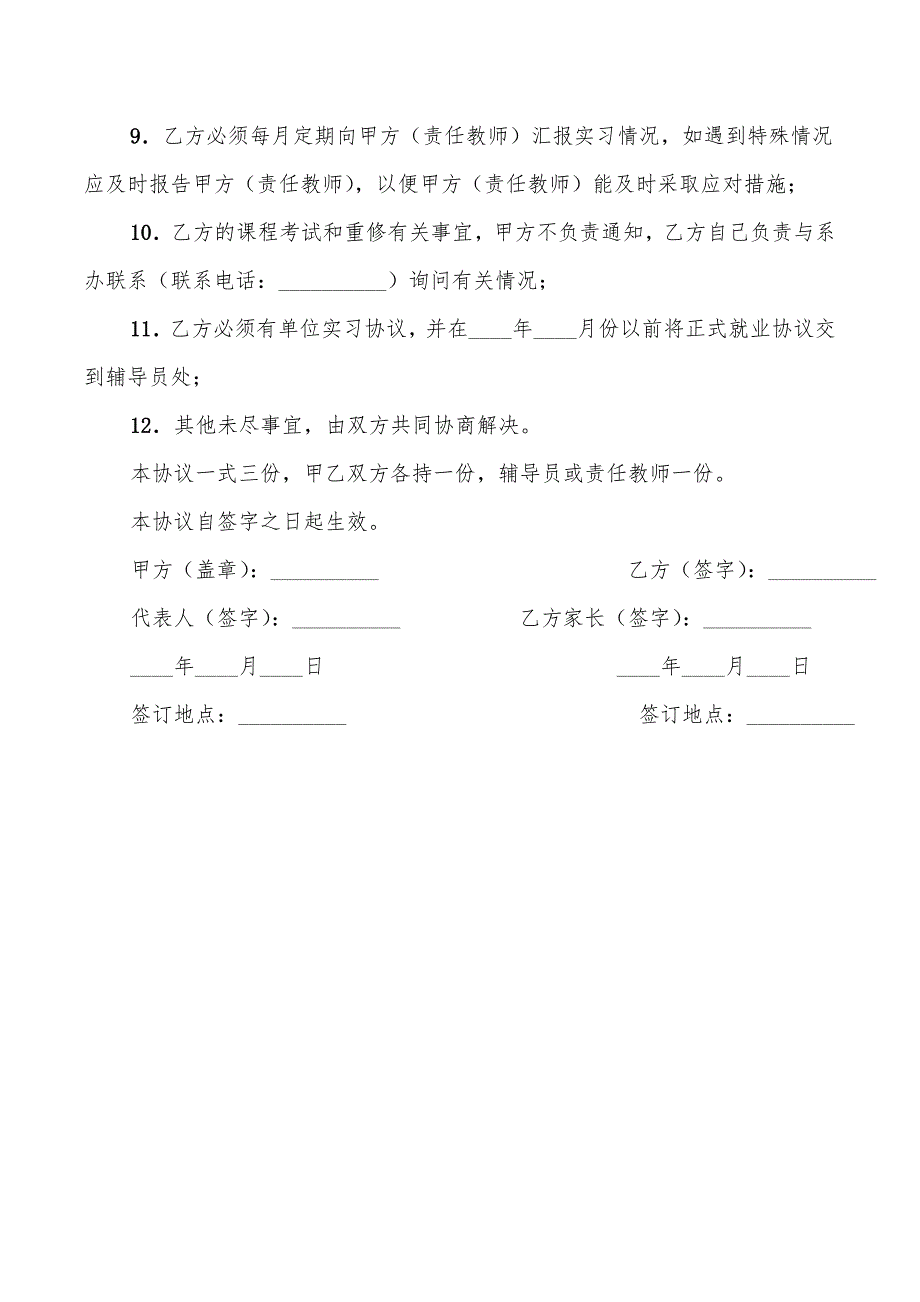 9. 乙方必须每月定期向甲方（责任教师）汇报实习情况，如遇到特殊情况
应及时报告甲方（责任教师），以便甲方（责任教师）能及时采取应对措施；
10. 乙方的课程考试和重修有关事宜，甲方不负责通知，乙方自己负责与系
办联系（联系电话：__________）询问有关情况；
11. 乙方必须有单位实习协议，并在____年____月份以前将正式就业协议交
到辅导员处；
12. 其他未尽事宜，由双方共同协商解决。
本协议一式三份，甲乙双方各持一份，辅导员或责任教师一份。
本协议自签字之日起生效。
甲方（盖章）：__________ 乙方（签字）：__________
代表人（签字）：__________ 乙方家长（签字）：__________
____年____月____日 ____年____月____日
签订地点：__________ 签订地点：__________